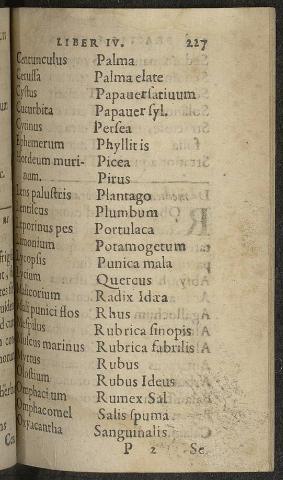 LIBER IV. 227
Centunculus Palma
Cerussa Palma elate
Cystus Papauer satiuum
Cucurbita Papauer syl.
Cytinus Persea
Ephemerum Phyllitis
Hordeum muri- Picea
num. Pirus
Lens palustris Plantago
Lentiscus Plumbum
Leporinus pes Portulaca
Limonium Potamogetum
Lycopsis Punica mala
Lycium Quercus
Malicorium Radix Idæa
Mali punici flos Rhus
Mespilus Rubrica sinopis
Muscus marinus Rubrica fabrilis
Myrtus Rubus
Olostium Rubus Ideus
Omphacium Rumex Sal
Omphacomel Salis spuma
Oxyacantha Sanguinalis
P 2 Se